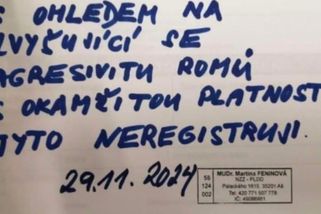 S OHLEDEM NA
ZVYŠUJÍCÍ SE
AGRESIVITU ROMŮ
S OKAMŽITOU PLATNOST
TYTO NEREGISTRUJI.
29.11.2024
58
124
002
MUDr. Martina FENINOVÁ
NZZ - PLDD
Palackého 1615, 35201 Aš
Tel: 420 771 507 778